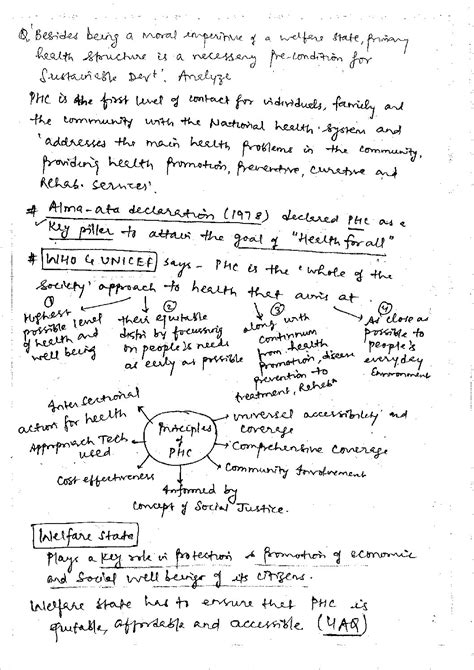 Q. 'Besides being a moral imperitive of a welfare state, primary
health structure is a necessary pre-condition for
Sustainable Devt'. Analyze
PHC is the first level of contact for individuals, family and
the community with the National health system and
'addresses the main health problems in the community,
providing health promotion, preventive, curative and
Rehab. services'.
# Alma-ata declaration (1978) declared PHC as a
key piller to attain the goal of "Health for all"
# WHO & UNICEF says - PHC is the 'whole of the
society' approach to health that aims at
① Highest
possible level
of health and
well being
② their equitable
distri by focussing
on people's needs
as early as possible
③ along with
continuum
from health
promotion, disease
prevention to
treatment, Rehab
④ As close as
possible to
people's
everyday
Environment
Principles
of
PHC
Intersectional
action for health
Approproach Tech
used
Cost effectiveness
Informed by
concept of Social Justice.
universal accessibility and
coverage
Comprehensive coverage
Community Involvement
Welfare State
Plays a key role in Protection & Promotion of economic
and Social well beings of its citizens.
Welfare State has to ensure that PHC is
equitable, affordable and accessible (4AQ)